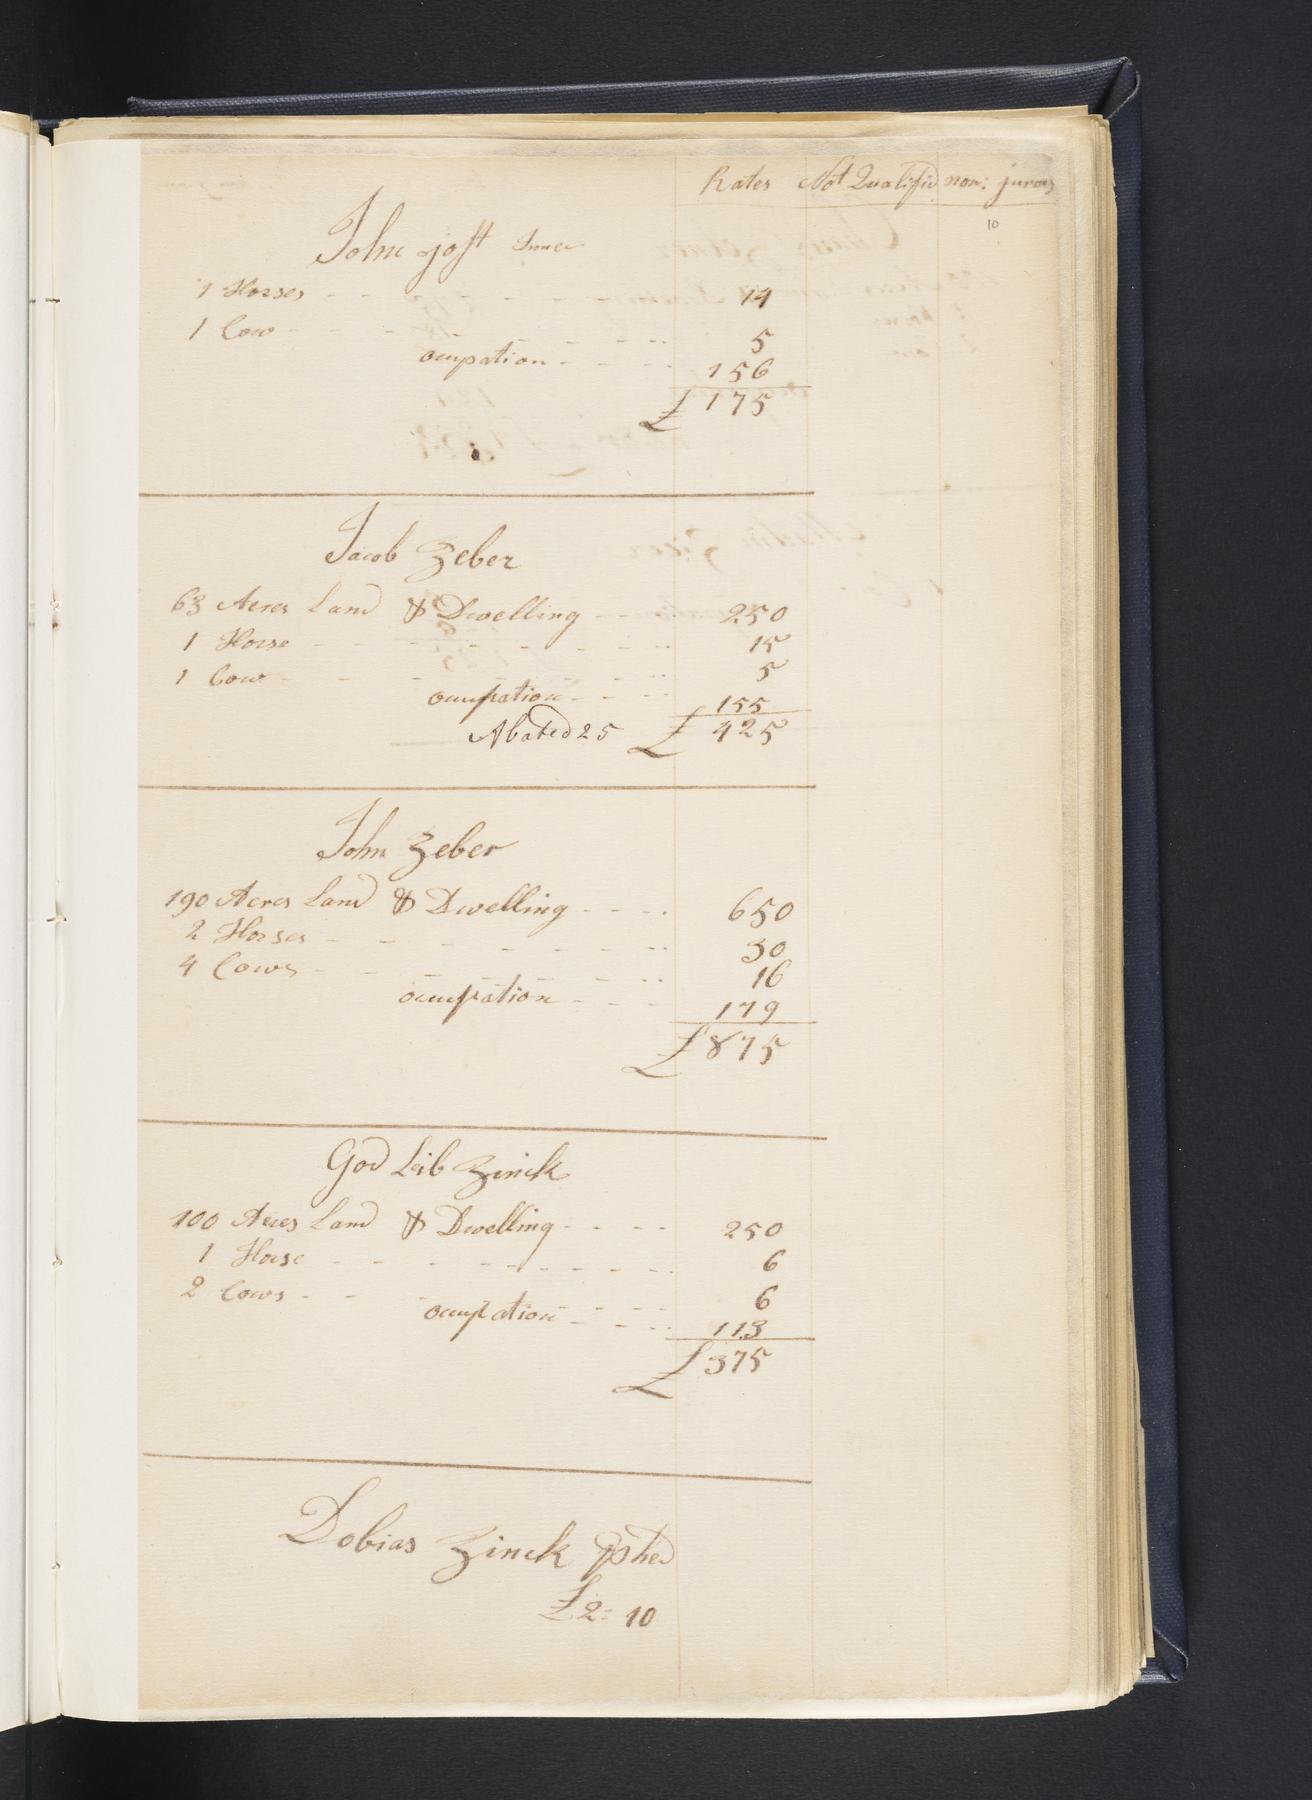 Rates Not Qualifid non: jurors
10
John Jost
1 Horses - - - - 14
1 Cow - - - - 5
ocupation - - - 156
£ 175
Jacob Zeber
63 Acres Land & Dwelling - - 250
1 Horse - - - - 15
1 Cow - - - - 5
ocupation - - - 155
Abated 25 £ 425
John Zeber
190 Acres Land & Dwelling - - - 650
2 Horses - - - - 30
4 Cows - - - - 16
ocupation - - - 179
£ 875
God Leib Zinck
100 Acres Land & Dwelling - - - 250
1 Horse - - - - 6
2 Cows - - - - 6
ocupation - - - 113
£ 375
Dobias Zinck
£ 2 = 10